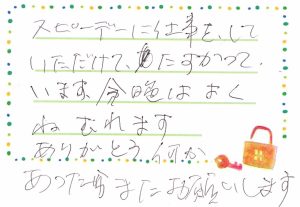 スピーデーに仕事をして
いただけて、たすかって
います。今晩はよく
ねむれます
ありがとう 何か
あったらまたお願いします